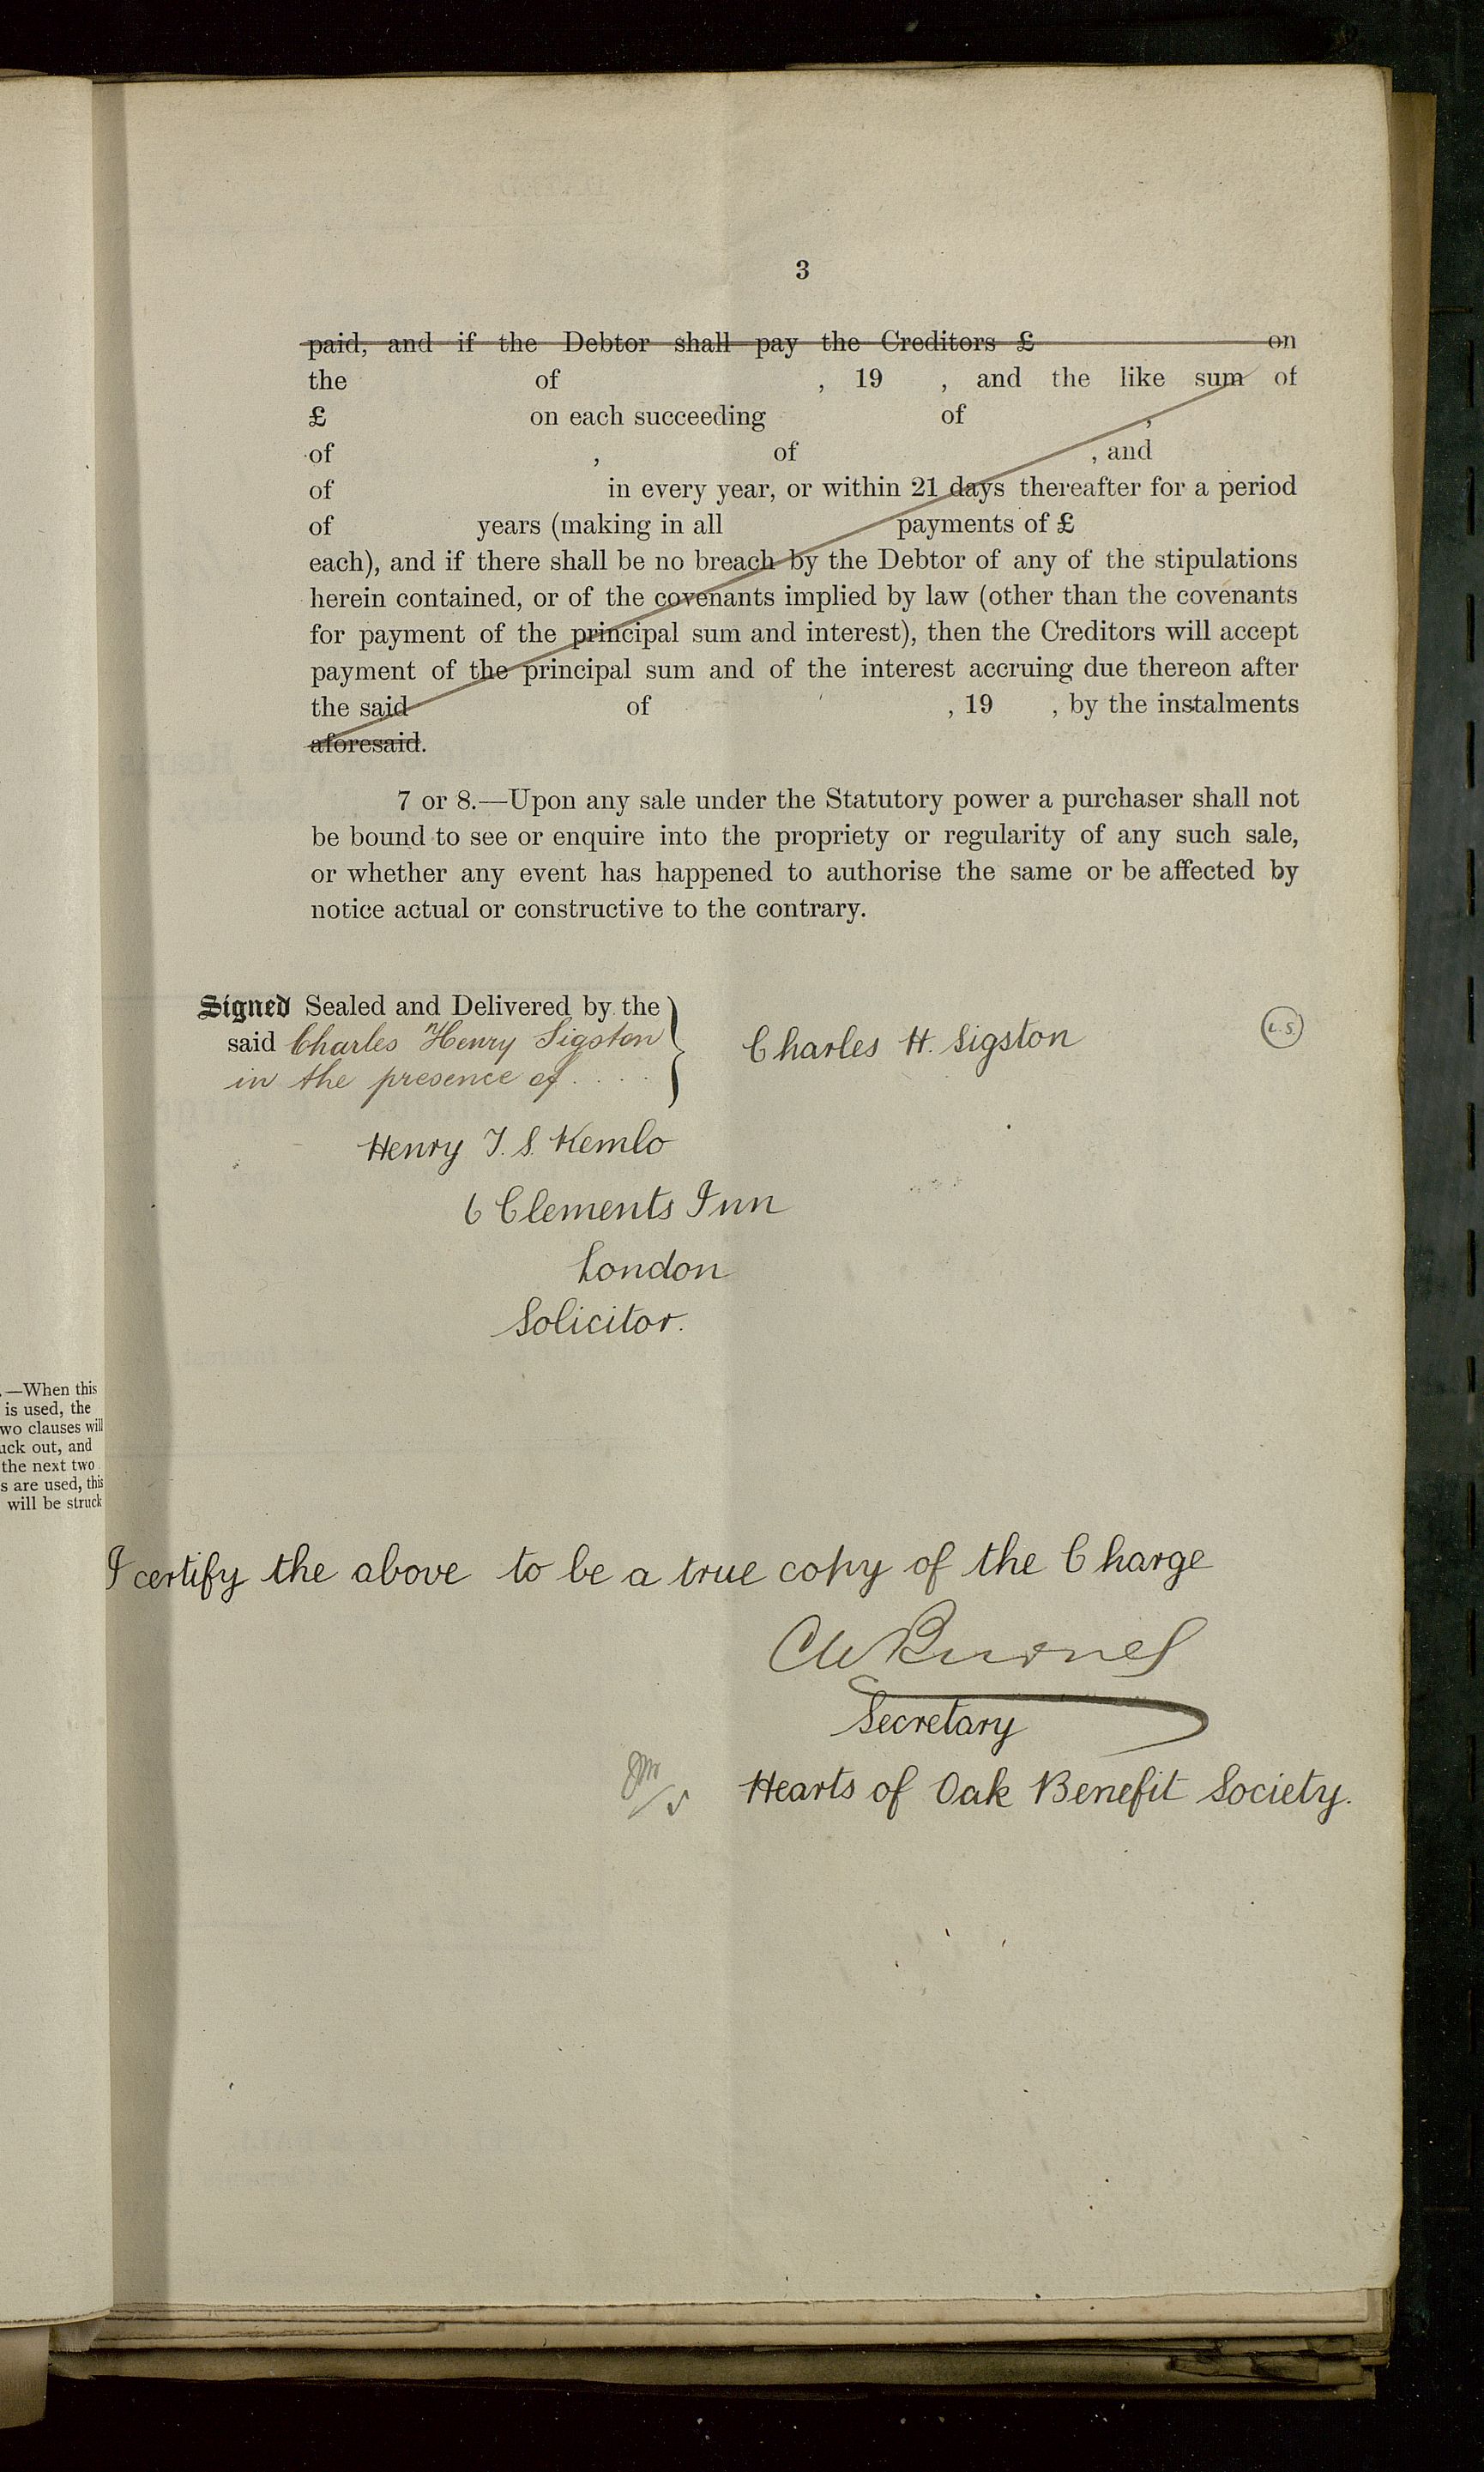 3
paid, and if the Debtor shall pay the Creditors £ on
the of , 19 , and the like sum of
£ on each succeeding of ,
of , of , and
of in every year, or within 21 days thereafter for a period
of years (making in all payments of £
each), and if there shall be no breach by the Debtor of any of the stipulations
herein contained, or of the covenants implied by law (other than the covenants
for payment of the principal sum and interest), then the Creditors will accept
payment of the principal sum and of the interest accruing due thereon after
the said of , 19 , by the instalments
aforesaid.
7 or 8.—Upon any sale under the Statutory power a purchaser shall not
be bound to see or enquire into the propriety or regularity of any such sale,
or whether any event has happened to authorise the same or be affected by
notice actual or constructive to the contrary.
Signed Sealed and Delivered by the
said Charles Henry Sigston
in the presence of ....
Charles H. Sigston
L.S.
Henry J. S. Kemlo
6 Clements Inn
London
Solicitor.
.—When this
is used, the
wo clauses will
uck out, and
the next two
s are used, this
will be struck
I certify the above to be a true copy of the Charge
Secretary
Hearts of Oak Benefit Society.